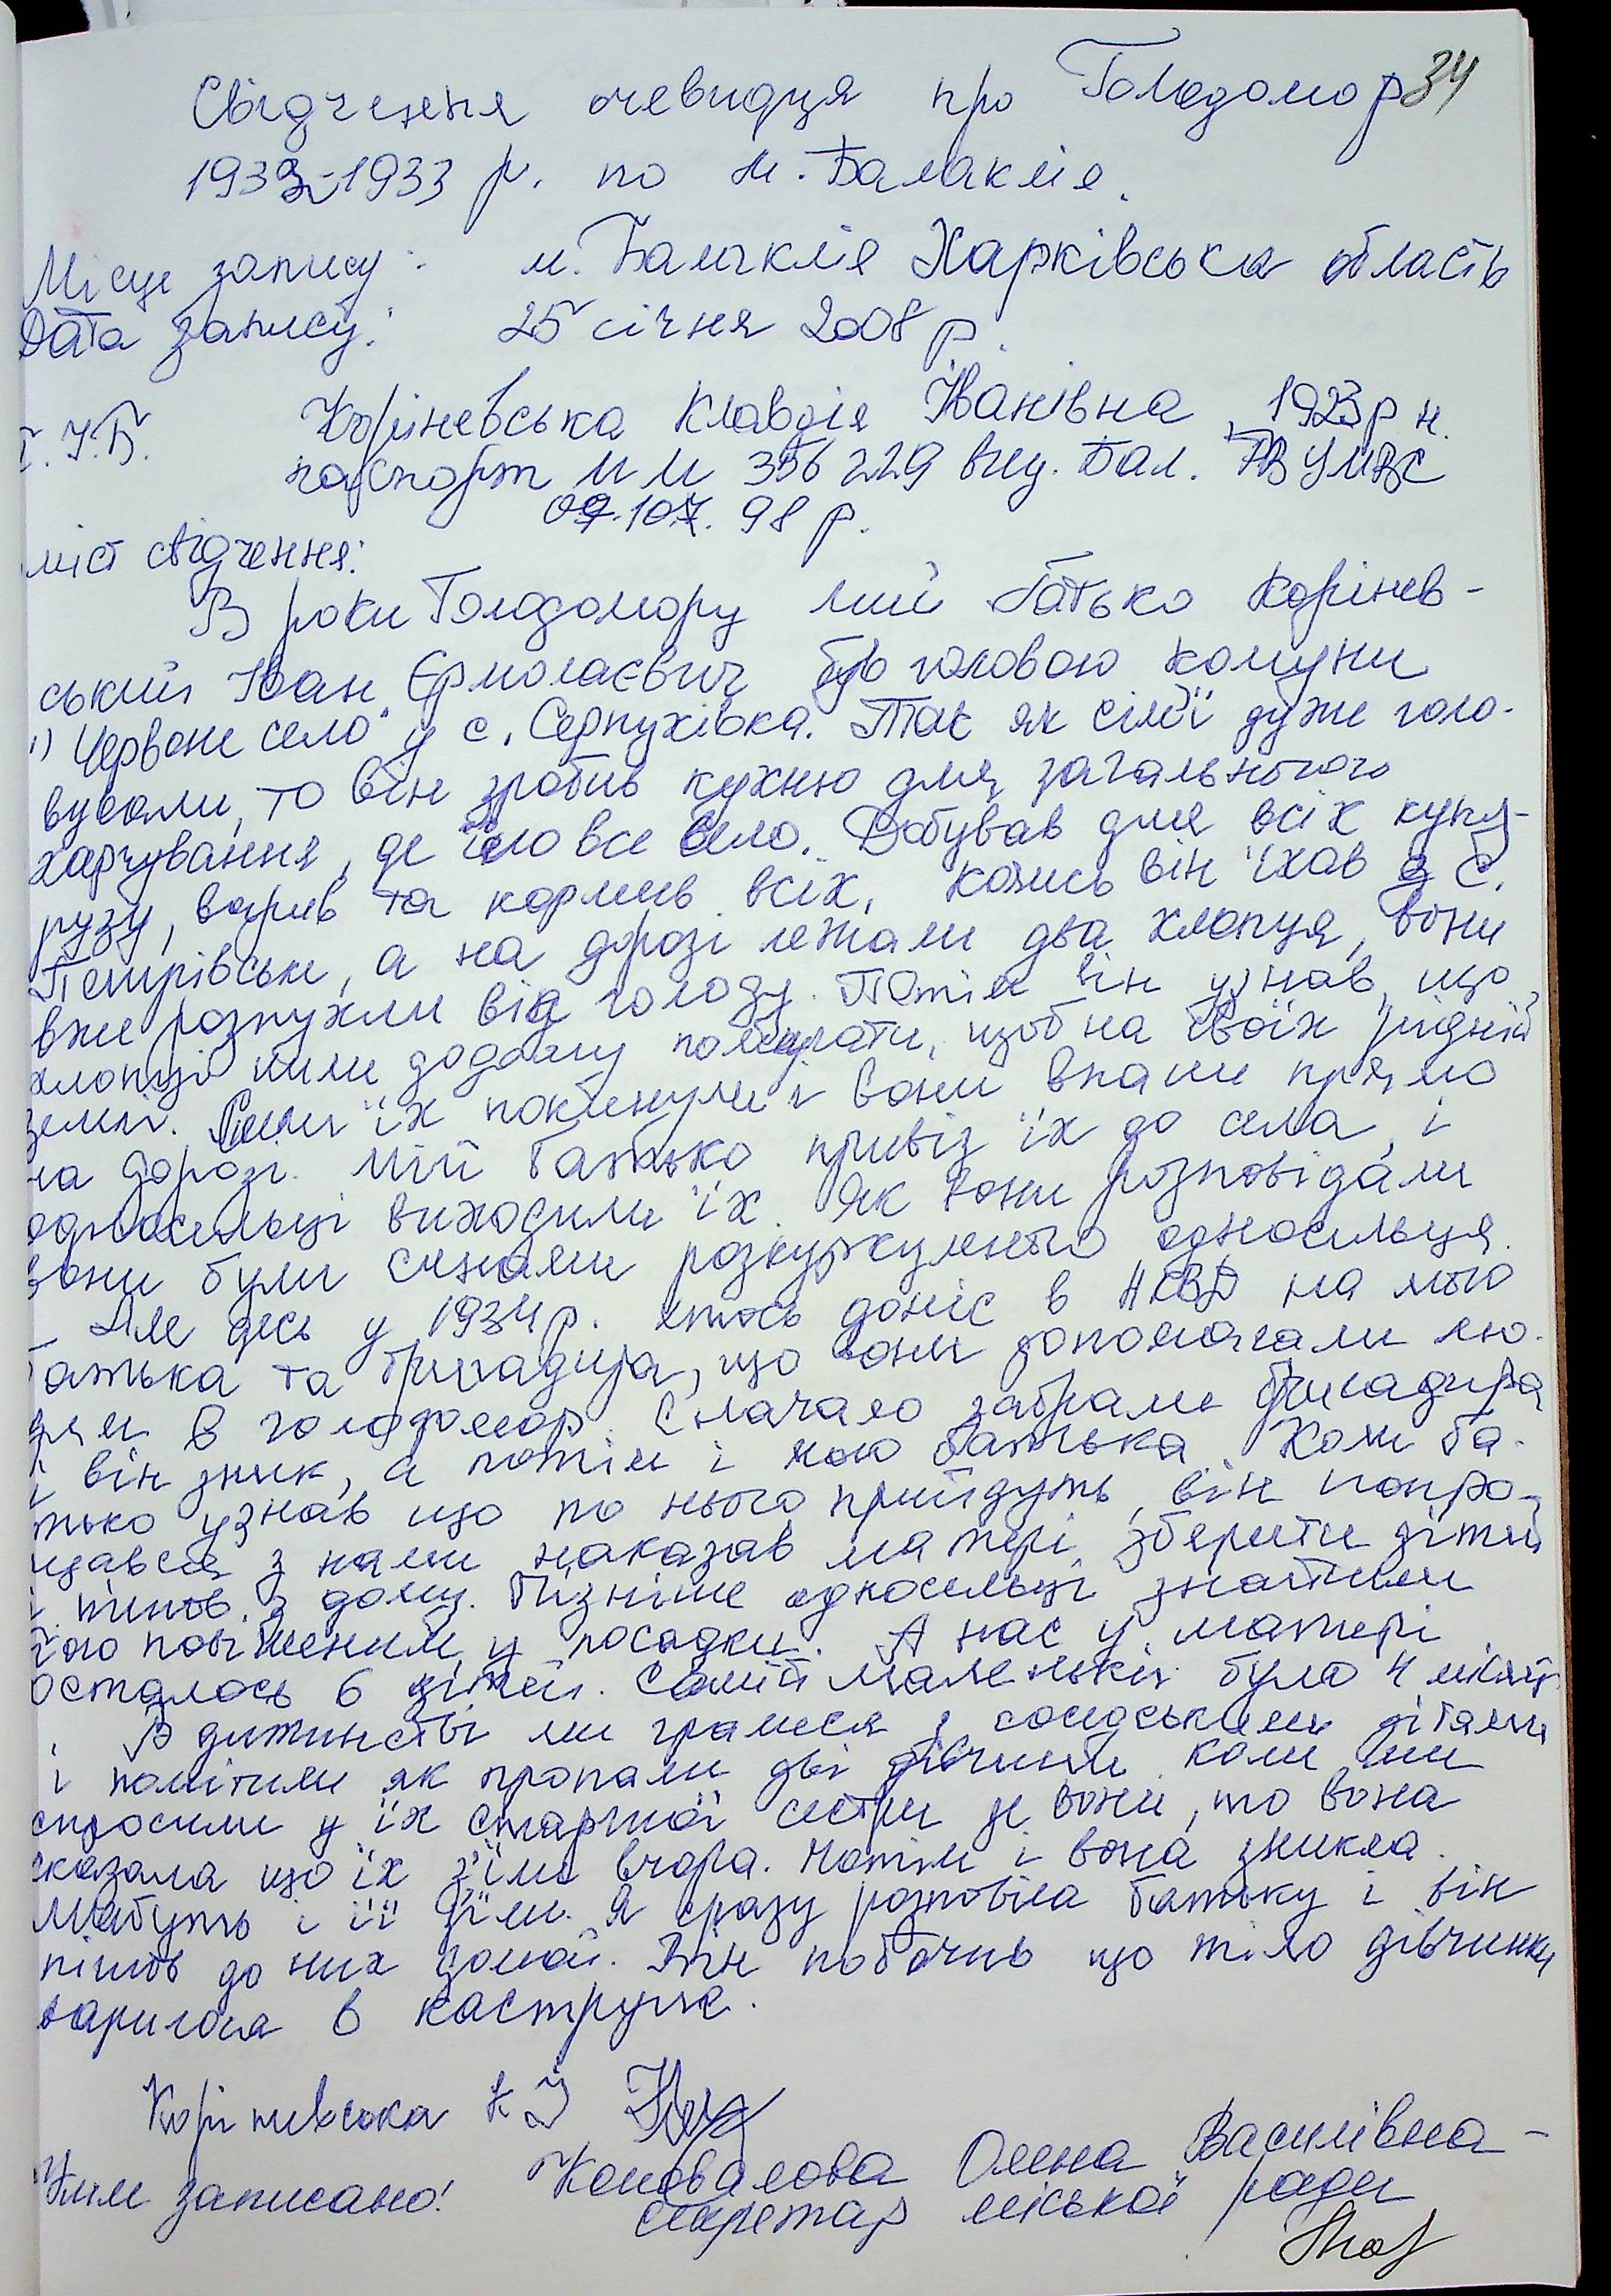 Свідчення очевидця про Голодомор 34
1932-1933 р. по м. Балаклія.
Місце запису: м. Балаклія Харківська область
Дата запису: 25 січня 2008 р.
П.І.Б. Коріневська Клавдія Іванівна, 1923 р н.
паспорт ММ 356229 вид. Бал. РВ УМВС
07. 98 р.
міст свідчення:
В роки Голодомору мій батько Корінев-
ський Іван Єрмолаєвич був головою комуни
"Червоне село" у с. Серпухівка. Так як сім'ї дуже голо-
вували, то він зробив кухню для загального
харчування, де їло все село. Добував для всіх куку-
рузу, варив та кормив всіх. Колись він їхав з с.
Петрівськи, а на дорозі лежали два хлопця, вони
вже розпухли від голоду. Потім він узнав, що
хлопці йшли додому помирати, щоб на своїх рідній
землі. Сили їх покинули і вони впали прямо
на дорозі. Мій батько привіз їх до села, і
односельці виходили їх. Як вони розповідали
вони були синами розкуркуленого односельця.
Але десь у 1934 р. хтось доніс в НКВД на мого
батька та бригадира, що вони допомагали лю-
дям в голодомор. Сначало забрали бригадира
і він зник, а потім і мого батька. Коли ба-
тько узнав що по нього прийдуть, він попро-
щався з нами наказав матері зберігти дітей
і пішов з дому. Пізніше односельці знайшли
його повішеним у посадки. А нас у матері
осталось 6 дітей. Самій маленькій було 4 місяці.
В дитинстві ми гралися з сусідськими дітями
і помітили як пропали дві дівчини. коли ми
спросили у їх старшої сестри де вони, то вона
сказала що їх з'їли вчора. Потім і вона зникла.
Мабуть і її з'їли. Я сразу розповіла батьку і він
пішов до них домой. Він побачив що тіло дівчинки
варилося в каструлє.
Коріневська К І
Ким записано: Коновалова Олена Василівна -
секретар міської ради